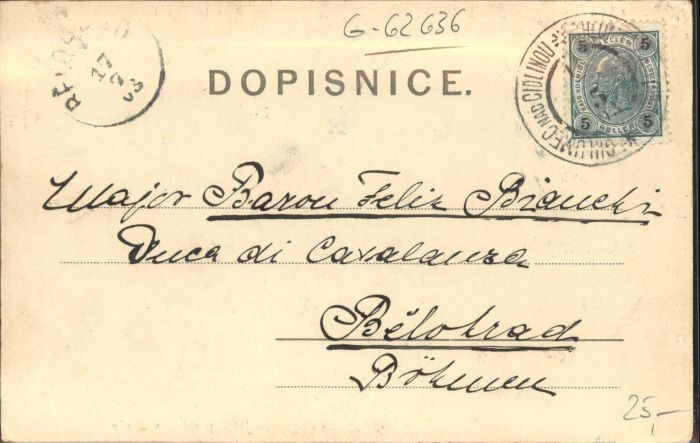 G-62636
DOPISNICE.
5 HELLER 5
5 HELLER 5
CHLUMEC NAD CIDLINOU
17
Major Baron Felix Bianchi
Duca di Casalanza
Bělohrad
Böhmen
25,-